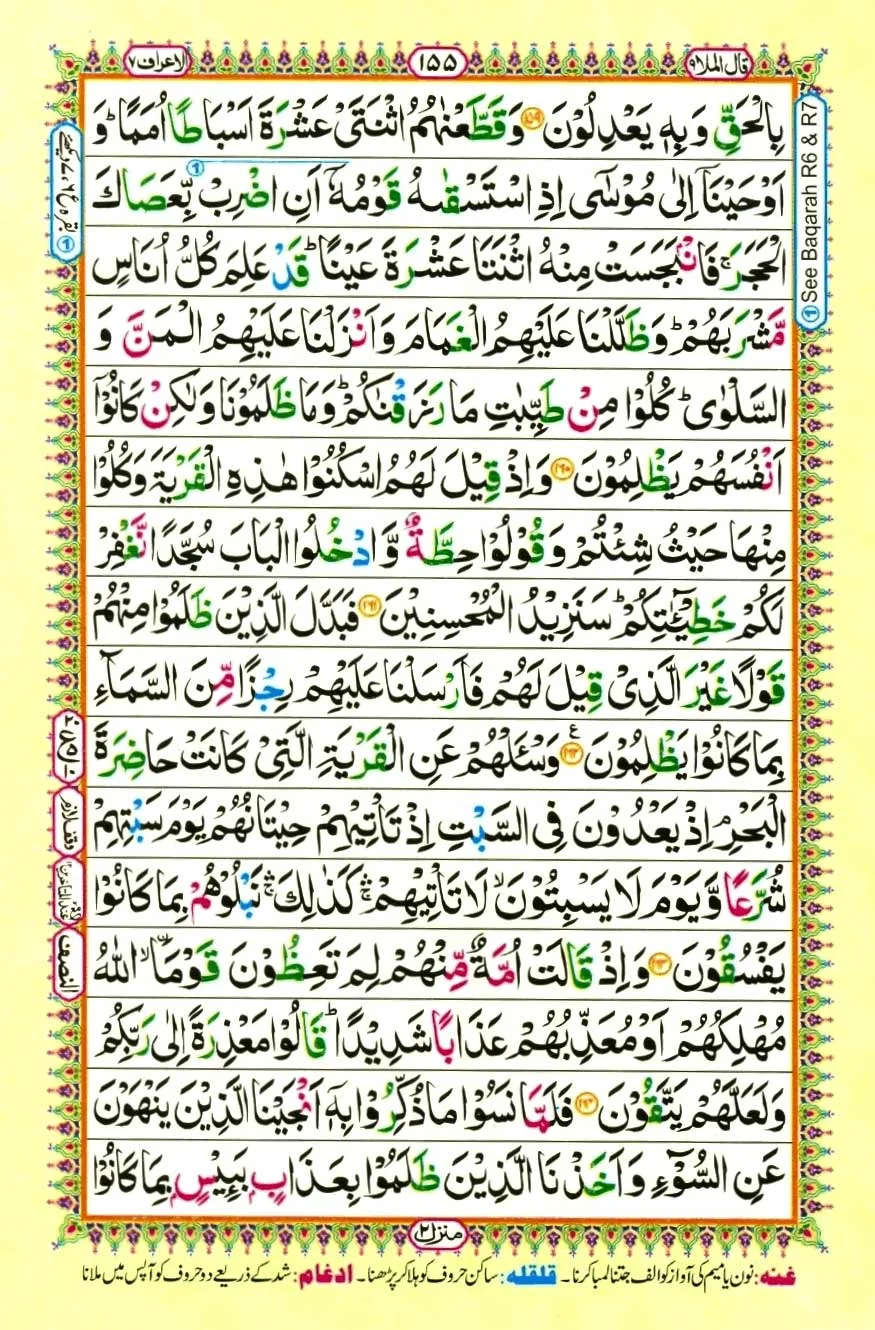 قال الملا ٩
١٥٥
الاعراف ٧
بِالْحَقِّ وَ بِهٖ يَعْدِلُوْنَ ﴿۱۵۹﴾ وَ قَطَّعْنٰهُمُ اثْنَتَيْ عَشْرَةَ اَسْبَاطًا اُمَمًا ؕ وَ
اَوْحَيْنَاۤ اِلٰى مُوْسٰۤى اِذِ اسْتَسْقٰىهُ قَوْمُهٗۤ اَنِ اضْرِبْ بِّعَصَاكَ
الْحَجَرَ ۚ فَانْۢبَجَسَتْ مِنْهُ اثْنَتَا عَشْرَةَ عَيْنًا ؕ قَدْ عَلِمَ كُلُّ اُنَاسٍ
مَّشْرَبَهُمْ ؕ وَ ظَلَّلْنَا عَلَيْهِمُ الْغَمَامَ وَ اَنْزَلْنَا عَلَيْهِمُ الْمَنَّ وَ
السَّلْوٰى ؕ كُلُوْا مِنْ طَيِّبٰتِ مَا رَزَقْنٰكُمْ ؕ وَ مَا ظَلَمُوْنَا وَ لٰكِنْ كَانُوْۤا
اَنْفُسَهُمْ يَظْلِمُوْنَ ﴿۱۶۰﴾ وَ اِذْ قِيْلَ لَهُمُ اسْكُنُوْا هٰذِهِ الْقَرْيَةَ وَ كُلُوْا
مِنْهَا حَيْثُ شِئْتُمْ وَ قُوْلُوْا حِطَّةٌ وَّ ادْخُلُوا الْبَابَ سُجَّدًا نَّغْفِرْ
لَكُمْ خَطِيْٓـٰٔتِكُمْ ؕ سَنَزِيْدُ الْمُحْسِنِيْنَ ﴿۱۶۱﴾ فَبَدَّلَ الَّذِيْنَ ظَلَمُوْا مِنْهُمْ
قَوْلًا غَيْرَ الَّذِيْ قِيْلَ لَهُمْ فَاَرْسَلْنَا عَلَيْهِمْ رِجْزًا مِّنَ السَّمَآءِ
بِمَا كَانُوْا يَظْلِمُوْنَ ﴿۱۶۲﴾ ع وَ سْـَٔلْهُمْ عَنِ الْقَرْيَةِ الَّتِيْ كَانَتْ حَاضِرَةَ
الْبَحْرِ ۘ اِذْ يَعْدُوْنَ فِي السَّبْتِ اِذْ تَاْتِيْهِمْ حِيْتَانُهُمْ يَوْمَ سَبْتِهِمْ
شُرَّعًا وَّ يَوْمَ لَا يَسْبِتُوْنَ ۙ لَا تَاْتِيْهِمْ ۛۚ كَذٰلِكَ ۛۚ نَبْلُوْهُمْ بِمَا كَانُوْا
يَفْسُقُوْنَ ﴿۱۶۳﴾ وَ اِذْ قَالَتْ اُمَّةٌ مِّنْهُمْ لِمَ تَعِظُوْنَ قَوْمَا ۙ۟ اللّٰهُ
مُهْلِكُهُمْ اَوْ مُعَذِّبُهُمْ عَذَابًا شَدِيْدًا ؕ قَالُوْا مَعْذِرَةً اِلٰى رَبِّكُمْ
وَ لَعَلَّهُمْ يَتَّقُوْنَ ﴿۱۶۴﴾ فَلَمَّا نَسُوْا مَا ذُكِّرُوْا بِهٖۤ اَنْجَيْنَا الَّذِيْنَ يَنْهَوْنَ
عَنِ السُّوْٓءِ وَ اَخَذْنَا الَّذِيْنَ ظَلَمُوْا بِعَذَابٍۭ بَـِٕيْسٍۭ بِمَا كَانُوْا
① See Baqarah R6 & R7
وقف لازم
النصف
منزل ٢
غنه: نون یا میم کی آواز کو الف جتنا لمبا کرنا۔ قلقله: ساکن حروف کو ہلا کر پڑھنا۔ ادغام: شد کے ذریعے دو حروف کو آپس میں ملانا